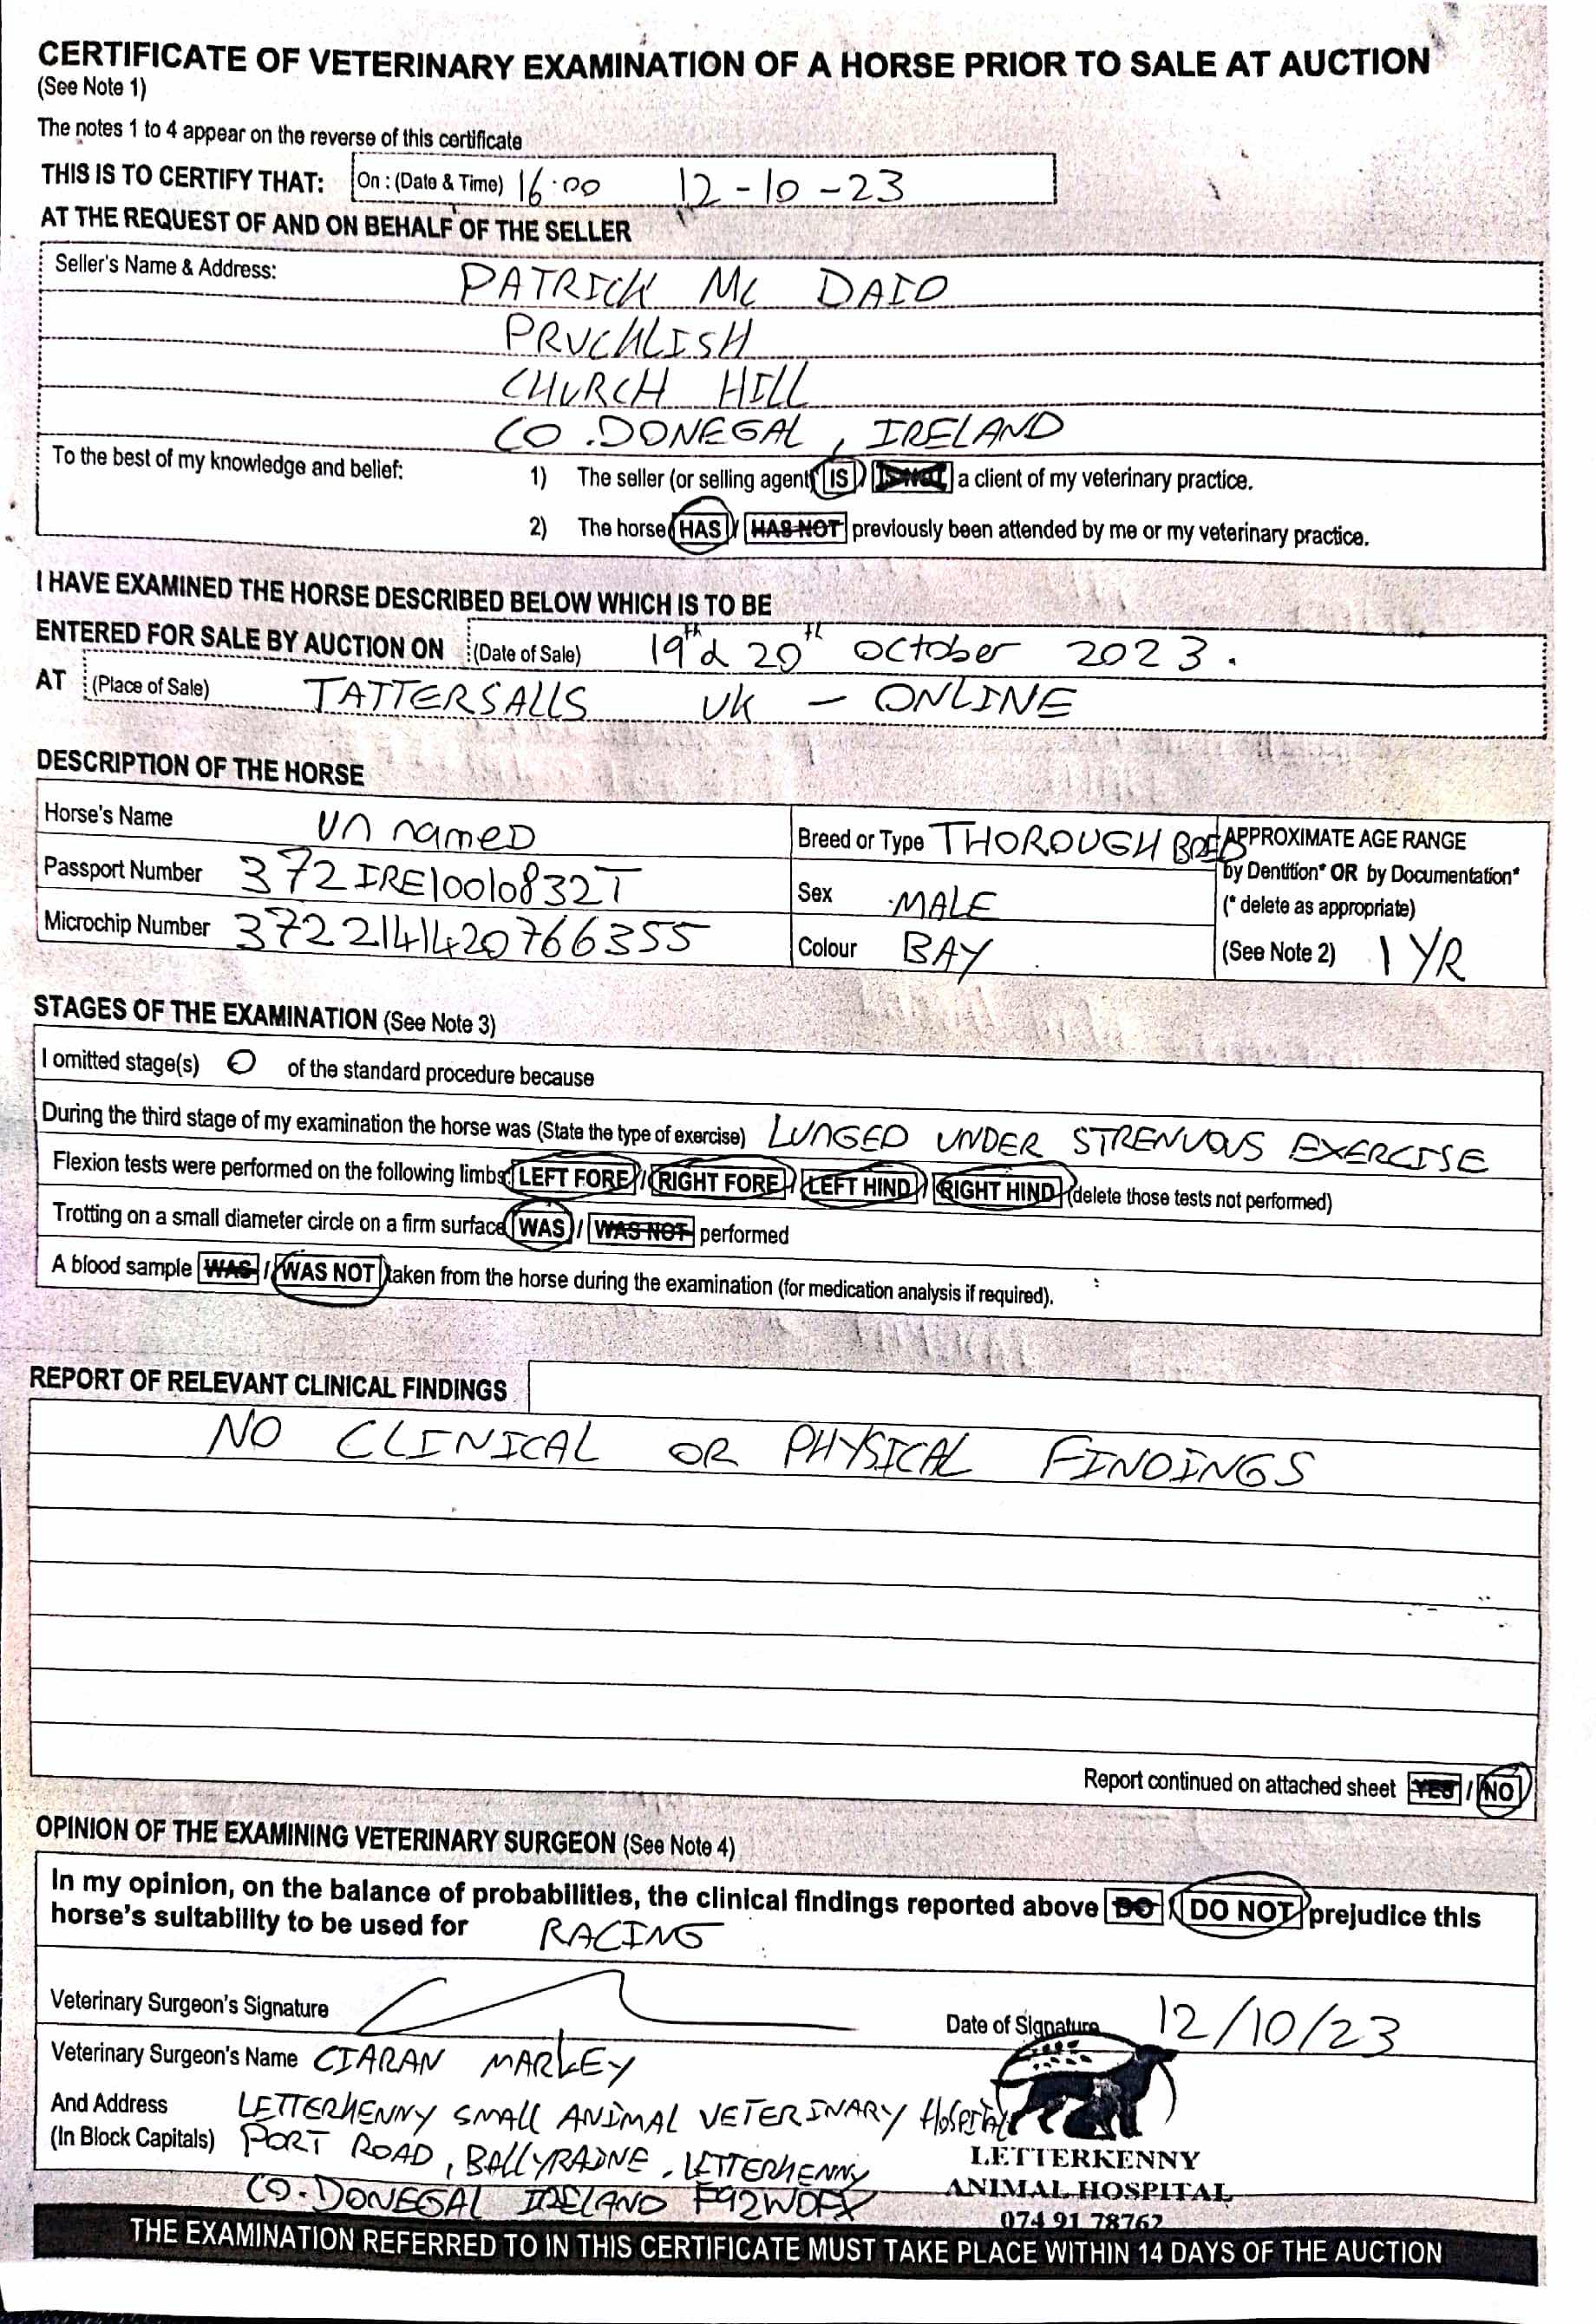 CERTIFICATE OF VETERINARY EXAMINATION OF A HORSE PRIOR TO SALE AT AUCTION
(See Note 1)
The notes 1 to 4 appear on the reverse of this certificate
THIS IS TO CERTIFY THAT: On : (Date & Time) 16.00 12-10-23
AT THE REQUEST OF AND ON BEHALF OF THE SELLER
Seller's Name & Address: PATRICK Mc DAID
PRUCKLISH
CHURCH HILL
CO.DONEGAL, IRELAND
To the best of my knowledge and belief: 1) The seller (or selling agent) IS / IS NOT a client of my veterinary practice.
2) The horse HAS / HAS NOT previously been attended by me or my veterinary practice.
I HAVE EXAMINED THE HORSE DESCRIBED BELOW WHICH IS TO BE
ENTERED FOR SALE BY AUCTION ON (Date of Sale) 19th & 20th October 2023.
AT (Place of Sale) TATTERSALLS UK - ONLINE
DESCRIPTION OF THE HORSE
Horse's Name UnnameD
Passport Number 372IRE10010832T
Microchip Number 372214142076​6355
Breed or Type THOROUGH BRED
Sex MALE
Colour BAY
APPROXIMATE AGE RANGE
by Dentition* OR by Documentation*
(* delete as appropriate)
(See Note 2) 1 YR
STAGES OF THE EXAMINATION (See Note 3)
I omitted stage(s) 0 of the standard procedure because
During the third stage of my examination the horse was (State the type of exercise) LUNGED UNDER STRENUOUS EXERCISE
Flexion tests were performed on the following limbs: LEFT FORE / RIGHT FORE / LEFT HIND / RIGHT HIND (delete those tests not performed)
Trotting on a small diameter circle on a firm surface WAS / WAS NOT performed
A blood sample WAS / WAS NOT taken from the horse during the examination (for medication analysis if required).
REPORT OF RELEVANT CLINICAL FINDINGS
NO CLINICAL OR PHYSICAL FINDINGS
Report continued on attached sheet YES / NO
OPINION OF THE EXAMINING VETERINARY SURGEON (See Note 4)
In my opinion, on the balance of probabilities, the clinical findings reported above DO / DO NOT prejudice this
horse's suitability to be used for RACING
Veterinary Surgeon's Signature
Date of Signature 12/10/23
Veterinary Surgeon's Name CIARAN MARLEY
And Address
(In Block Capitals)
LETTERKENNY SMALL ANIMAL VETERINARY Hospital
PORT ROAD, BALLYRAINE, LETTERKENNY
CO.DONEGAL IRELAND F92WDFX
LETTERKENNY
ANIMAL HOSPITAL
074 91 78762
THE EXAMINATION REFERRED TO IN THIS CERTIFICATE MUST TAKE PLACE WITHIN 14 DAYS OF THE AUCTION